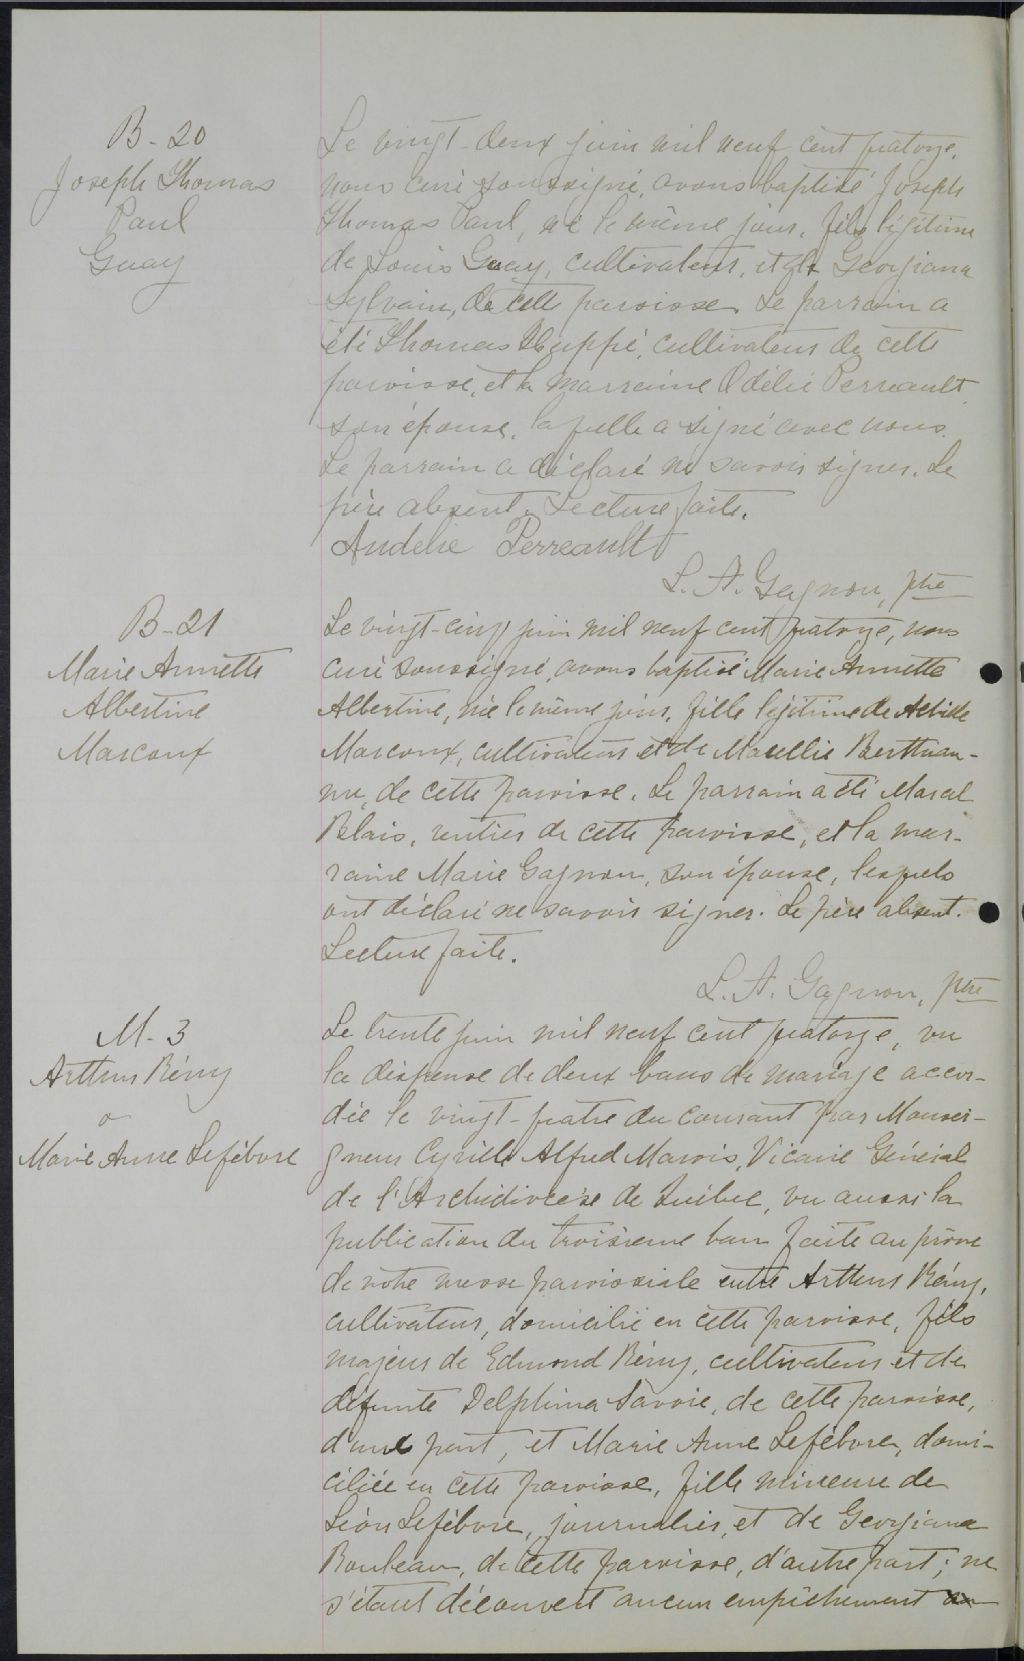 B-20
Joseph Thomas
Paul
Guay
Le vingt-deux juin mil neuf cent quatorze,
nous curé soussigné, avons baptisé Joseph
Thomas Paul, né le même jour, fils légitime
de Louis Guay, cultivateur, et de Georgiana
Sylvain, de cette paroisse. Le parrain a
été Thomas Huppé, cultivateur de cette
paroisse, et la marraine Odélie Perreault
son épouse, laquelle a signé avec nous.
Le parrain a déclaré ne savoir signer. Le
père absent. Lecture faite.
Audelie Perreault
L. A. Gagnon, ptre
B-21
Marie Annette
Albertine
Marcoux
Le vingt-cinq juin mil neuf cent quatorze, nous
curé soussigné, avons baptisé Marie Annette
Albertine, née le même jour, fille légitime de
Marcoux, cultivateur et de Berthiau-
me, de cette paroisse. Le parrain a été Marcel
Blais, rentier de cette paroisse, et la mar-
raine Marie Gagnon, son épouse, lesquels
ont déclaré ne savoir signer. Le père absent.
Lecture faite.
L. A. Gagnon, ptre
M-3
Arthur Rémy
&
Marie Anne Lefebvre
Le trente juin mil neuf cent quatorze, vu
la dispense de deux bans de mariage accor-
dée le vingt-quatre du courant par Monsei-
gneur Cyrille Alfred Marois, Vicaire Général
de l'Archidiocèse de Québec, vu aussi la
publication du troisième ban faite au prône
de notre messe paroissiale entre Arthur Rémy,
cultivateur, domicilié en cette paroisse, fils
majeur de Edmond Rémy, cultivateur et de
défunte Delphina Savoie, de cette paroisse,
d'une part, et Marie Anne Lefebvre, domi-
ciliée en cette paroisse, fille mineure de
Léon Lefebvre, journalier, et de Georgiana
Bouleau, de cette paroisse, d'autre part; ne
s'étant découvert aucun empêchement